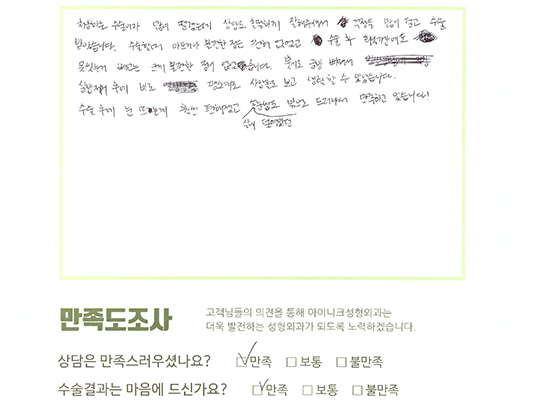 처음하는 수술이라 많이 떨렸는데 상담도 친절하게 잘해주셔서 걱정을 많이 덜고 수술
받았습니다. 수술할때 아프거나 불편한 점은 전혀 없었고 수술 후 회복기간에도
못씻는거 빼고는 크게 불편한 점이 없었습니다. 붓기도 금방 빠져서
실밥제거 후에 바로 평소처럼 사람들도 보고 생활 할 수 있었습니다.
수술 후에 눈 뜨는게 훨씬 편해졌고 속눈썹도 밖으로 드러나서 만족하고 있습니다!
만족도조사
고객님들의 의견을 통해 아이니크성형외과는
더욱 발전하는 성형외과가 되도록 노력하겠습니다.
상담은 만족스러우셨나요? 만족 보통 불만족
수술결과는 마음에 드신가요? 만족 보통 불만족